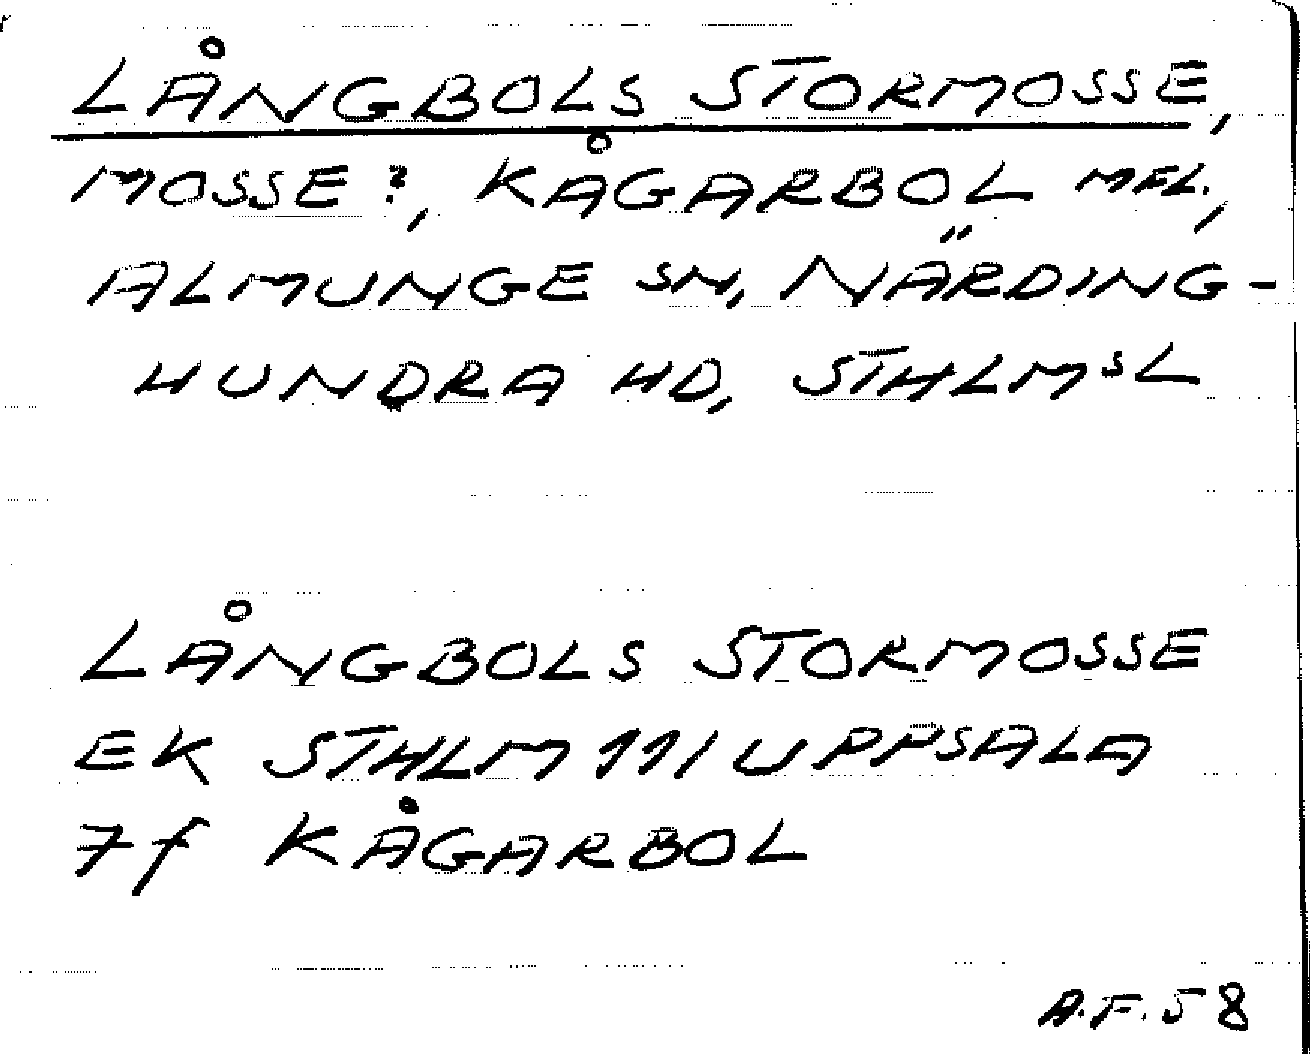 LÅNGBOLS STORMOSSE,
MOSSE?, KÅGARBOL MFL.,
ALMUNGE SN, NÄRDING-
HUNDRA HD, STHLMSL
LÅNGBOLS STORMOSSE
EK STHLM 111 UPPSALA
7f KÅGARBOL
A.F. 58